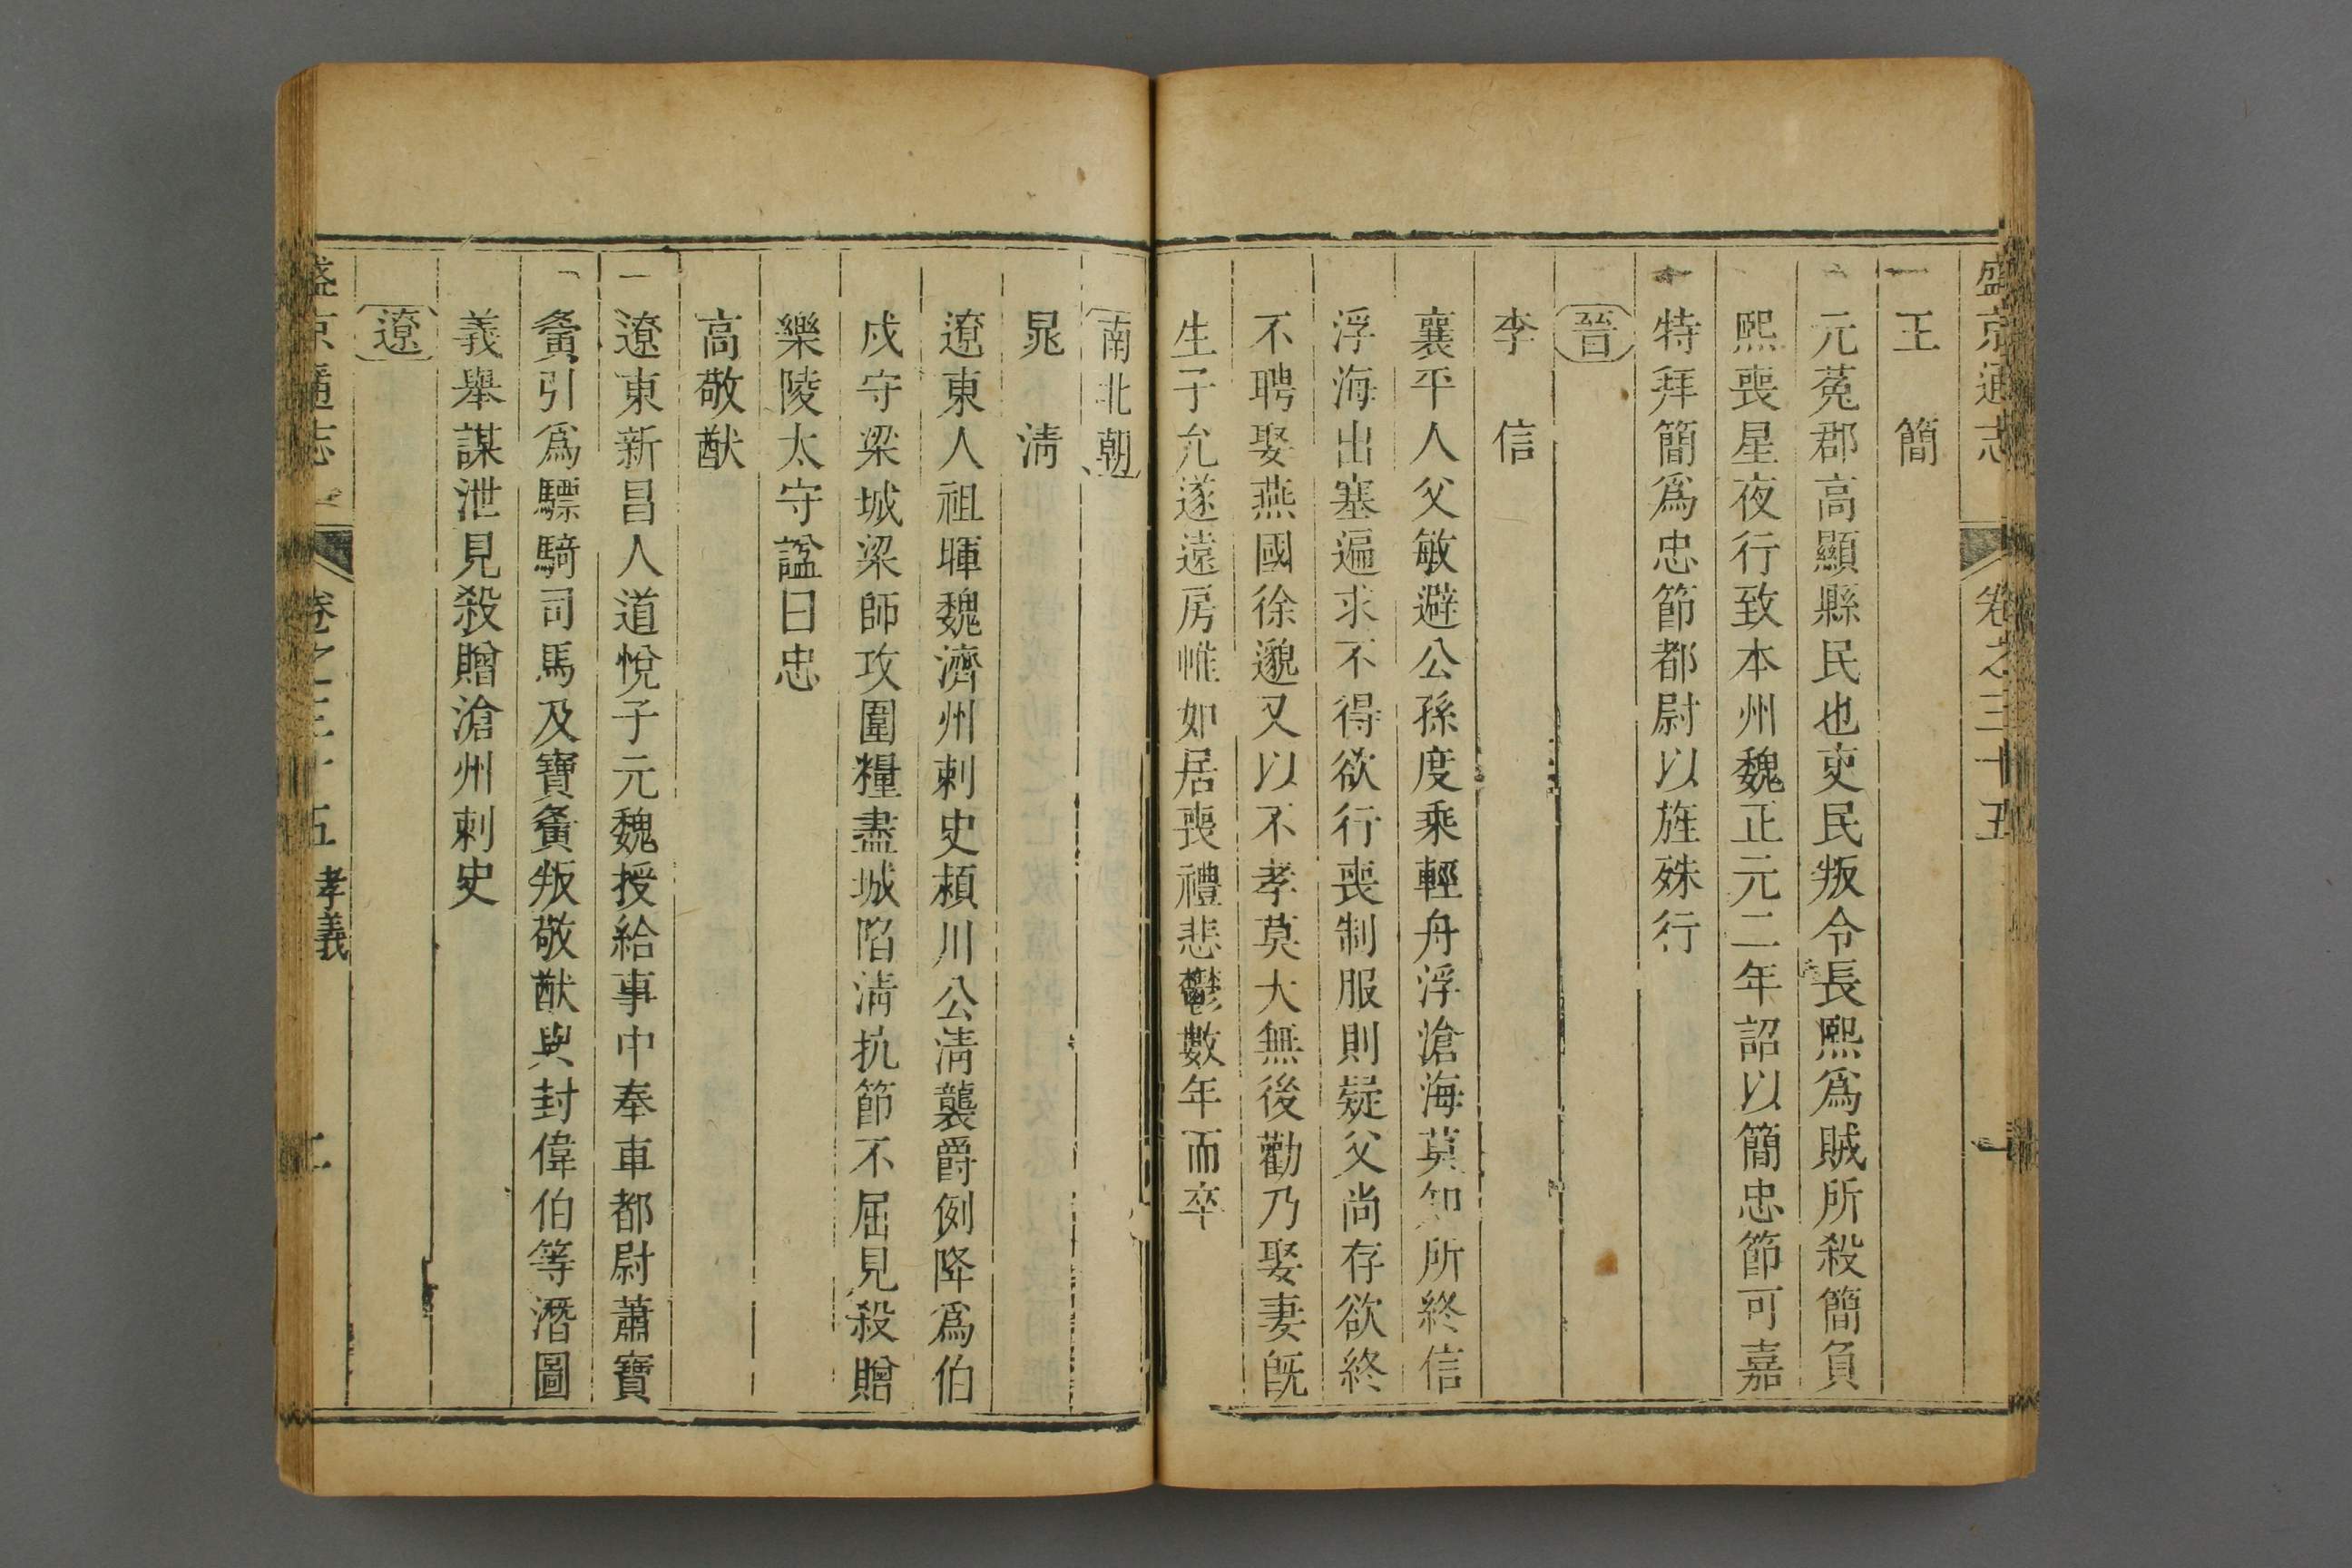 盛京通志 卷之三十五 一
王 簡
元菟郡高顯縣民也吏民叛令長熙爲賊所殺簡負
熙喪星夜行致本州魏正元二年詔以簡忠節可嘉
特拜簡爲忠節都尉以旌殊行
晉
李 信
襄平人父敏避公孫度乘輕舟浮滄海莫知所終信
浮海出塞遍求不得欲行喪制服則疑父尚存欲終
不聘娶燕國徐邈又以不孝莫大無後勸乃娶妻旣
生子允遂遠房帷如居喪禮悲鬱數年而卒
南北朝
晁 淸
遼東人祖暉魏濟州刺史潁川公淸襲爵例降爲伯
戍守梁城梁師攻圍糧盡城陷淸抗節不屈見殺贈
樂陵太守諡曰忠
高敬猷
遼東新昌人道悅子元魏授給事中奉車都尉蕭寶
夤引爲驃騎司馬及寶夤叛敬猷與封偉伯等潛圖
義舉謀泄見殺贈滄州刺史
遼
盛京通志 卷之三十五 孝義 二